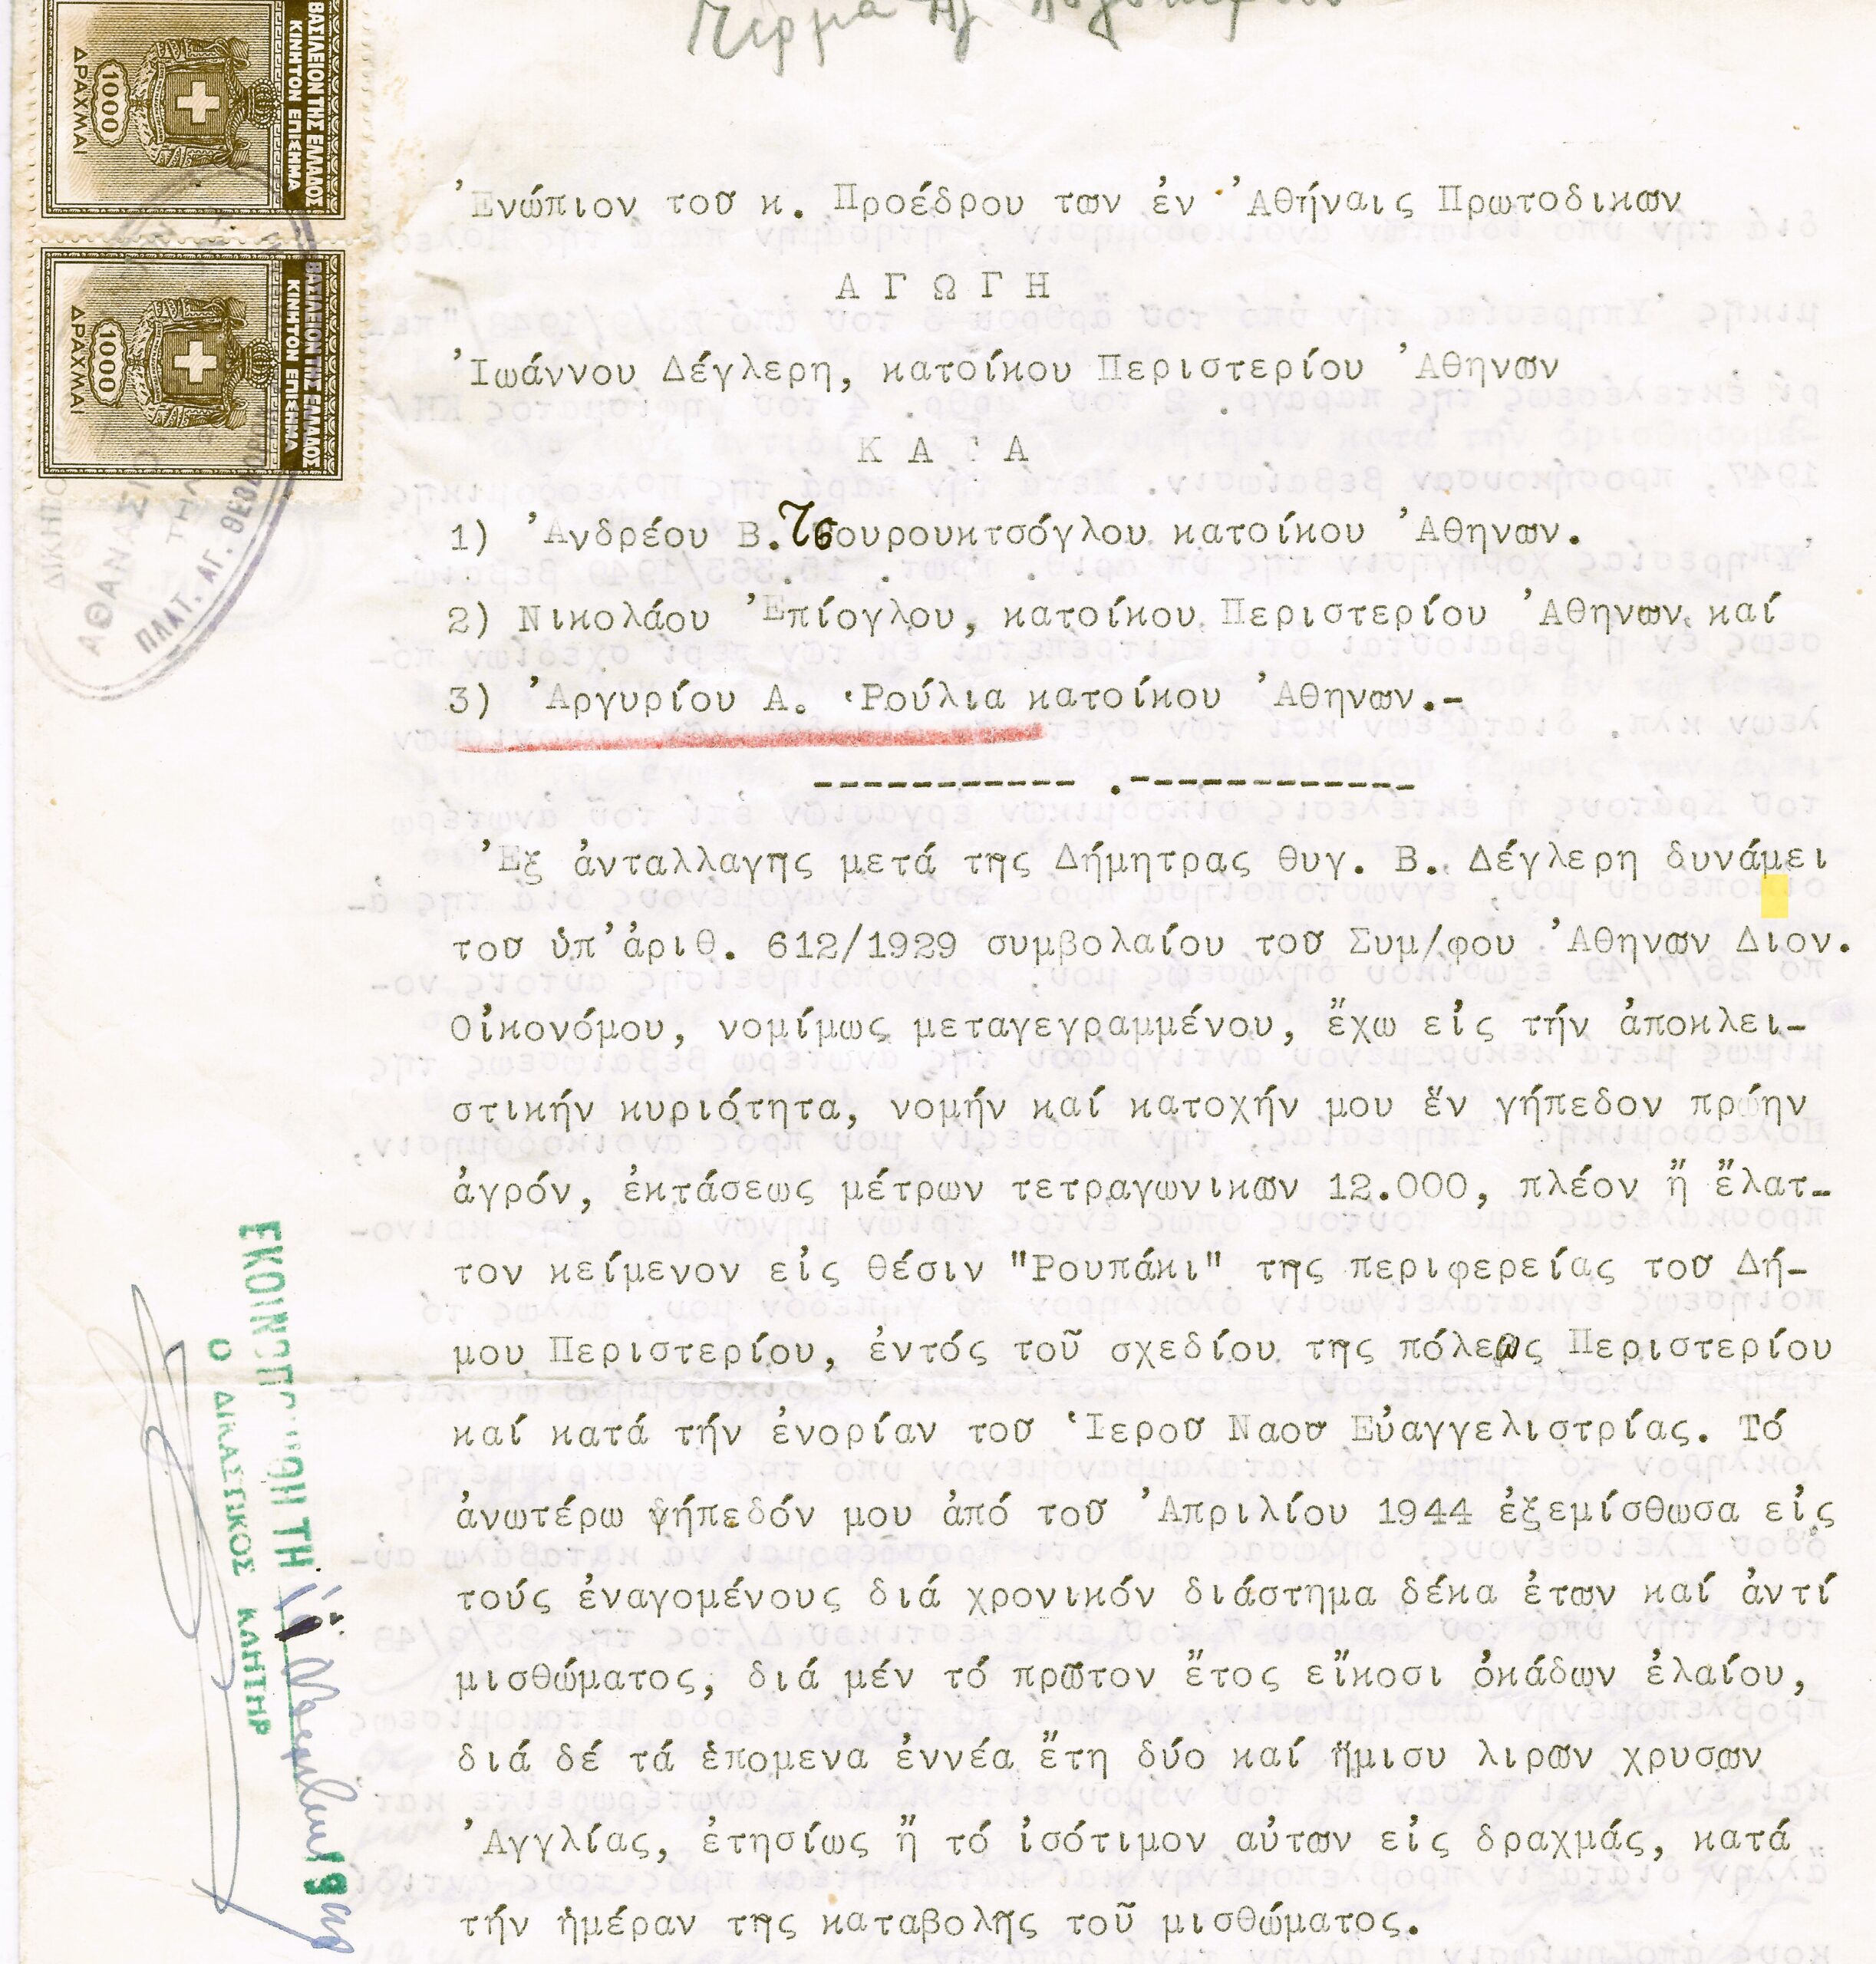 ΒΑΣΙΛΕΙΟΝ ΤΗΣ ΕΛΛΑΔΟΣ
ΚΙΝΗΤΟΝ ΕΠΙΣΗΜΑ
1000
ΔΡΑΧΜΑΙ
ΒΑΣΙΛΕΙΟΝ ΤΗΣ ΕΛΛΑΔΟΣ
ΚΙΝΗΤΟΝ ΕΠΙΣΗΜΑ
1000
ΔΡΑΧΜΑΙ
ΑΘΑΝΑΣΙΟ
ΠΛΑΤ. ΑΓ.
Ἐνώπιον τοῦ κ. Προέδρου τῶν ἐν Ἀθήναις Πρωτοδικῶν
Α Γ Ω Γ Η
Ἰωάννου Δέγλερη, κατοίκου Περιστερίου Ἀθηνῶν
Κ Α Τ Α
1) Ἀνδρέου Β. Τσουρουκτσόγλου κατοίκου Ἀθηνῶν.
2) Νικολάου Ἐπίογλου, κατοίκου Περιστερίου Ἀθηνῶν καί
3) Ἀργυρίου Α. Ῥούλια κατοίκου Ἀθηνῶν.-
----------- .------------
Ἐξ ἀνταλλαγῆς μετά τῆς Δήμητρας θυγ. Β. Δέγλερη δυνάμει
τοῦ ὑπ'ἀριθ. 612/1929 συμβολαίου τοῦ Συμ/φου Ἀθηνῶν Διον.
Οἰκονόμου, νομίμως μεταγεγραμμένου, ἔχω εἰς τήν ἀποκλει-
στικήν κυριότητα, νομήν καί κατοχήν μου ἕν γήπεδον πρώην
ἀγρόν, ἐκτάσεως μέτρων τετραγωνικῶν 12.000, πλέον ἤ ἔλατ-
τον κείμενον εἰς θέσιν "Ρουπάκι" τῆς περιφερείας τοῦ Δή-
μου Περιστερίου, ἐντός τοῦ σχεδίου τῆς πόλεως Περιστερίου
καί κατά τήν ἐνορίαν τοῦ Ἱεροῦ Ναοῦ Εὐαγγελιστρίας. Τό
ἀνωτέρω γήπεδόν μου ἀπό τοῦ Ἀπριλίου 1944 ἐξεμίσθωσα εἰς
τούς ἐναγομένους διά χρονικόν διάστημα δέκα ἐτῶν καί ἀντί
μισθώματος, διά μέν τό πρῶτον ἔτος εἴκοσι ὀκάδων ἐλαίου,
διά δέ τά ἑπομενα ἐννέα ἔτη δύο καί ἥμισυ λιρῶν χρυσῶν
Ἀγγλίας, ἐτησίως ἤ τό ἰσότιμον αὐτῶν εἰς δραχμάς, κατά
τήν ἡμέραν τῆς καταβολῆς τοῦ μισθώματος.
ΤΗ
Ο ΔΙΚΑΣΤΙΚΟΣ ΚΛΗΤΗΡ